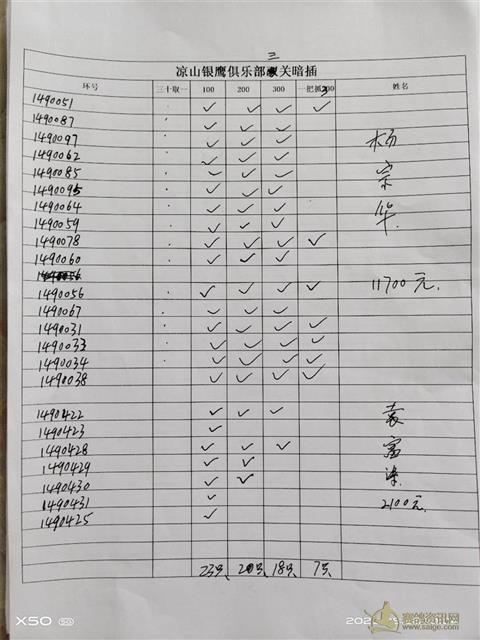 三
凉山银鹰俱乐部关暗插
环号 三十取一 100 200 300 一把抓300 姓名
1490051 ✓ ✓ ✓ ✓
1490087 ✓ ✓ ✓
1490097 ✓ ✓ ✓ 杨
1490062 ✓ ✓ ✓
1490085 ✓ ✓ ✓ 宗
1490095 ✓ ✓ ✓
1490064 ✓ ✓ ✓ 华
1490059 ✓ ✓ ✓
1490078 ✓ ✓ ✓ ✓
1490060 ✓ ✓ ✓
1490056 ✓ ✓ ✓ ✓ 11700元
1490067 ✓ ✓ ✓
1490031 ✓ ✓ ✓ ✓
1490033 ✓ ✓ ✓ ✓
1490034 ✓ ✓ ✓ ✓
1490038 ✓ ✓ ✓ ✓
1490422 ✓ ✓ ✓ 袁
1490423 ✓
1490428 ✓ ✓ ✓ 富
1490429 ✓ ✓
1490430 ✓ ✓
1490431 ✓ 2100元
1490425 ✓
23只 20只 18只 7只
X50 5G
赛鸽资讯网
www.saige.com